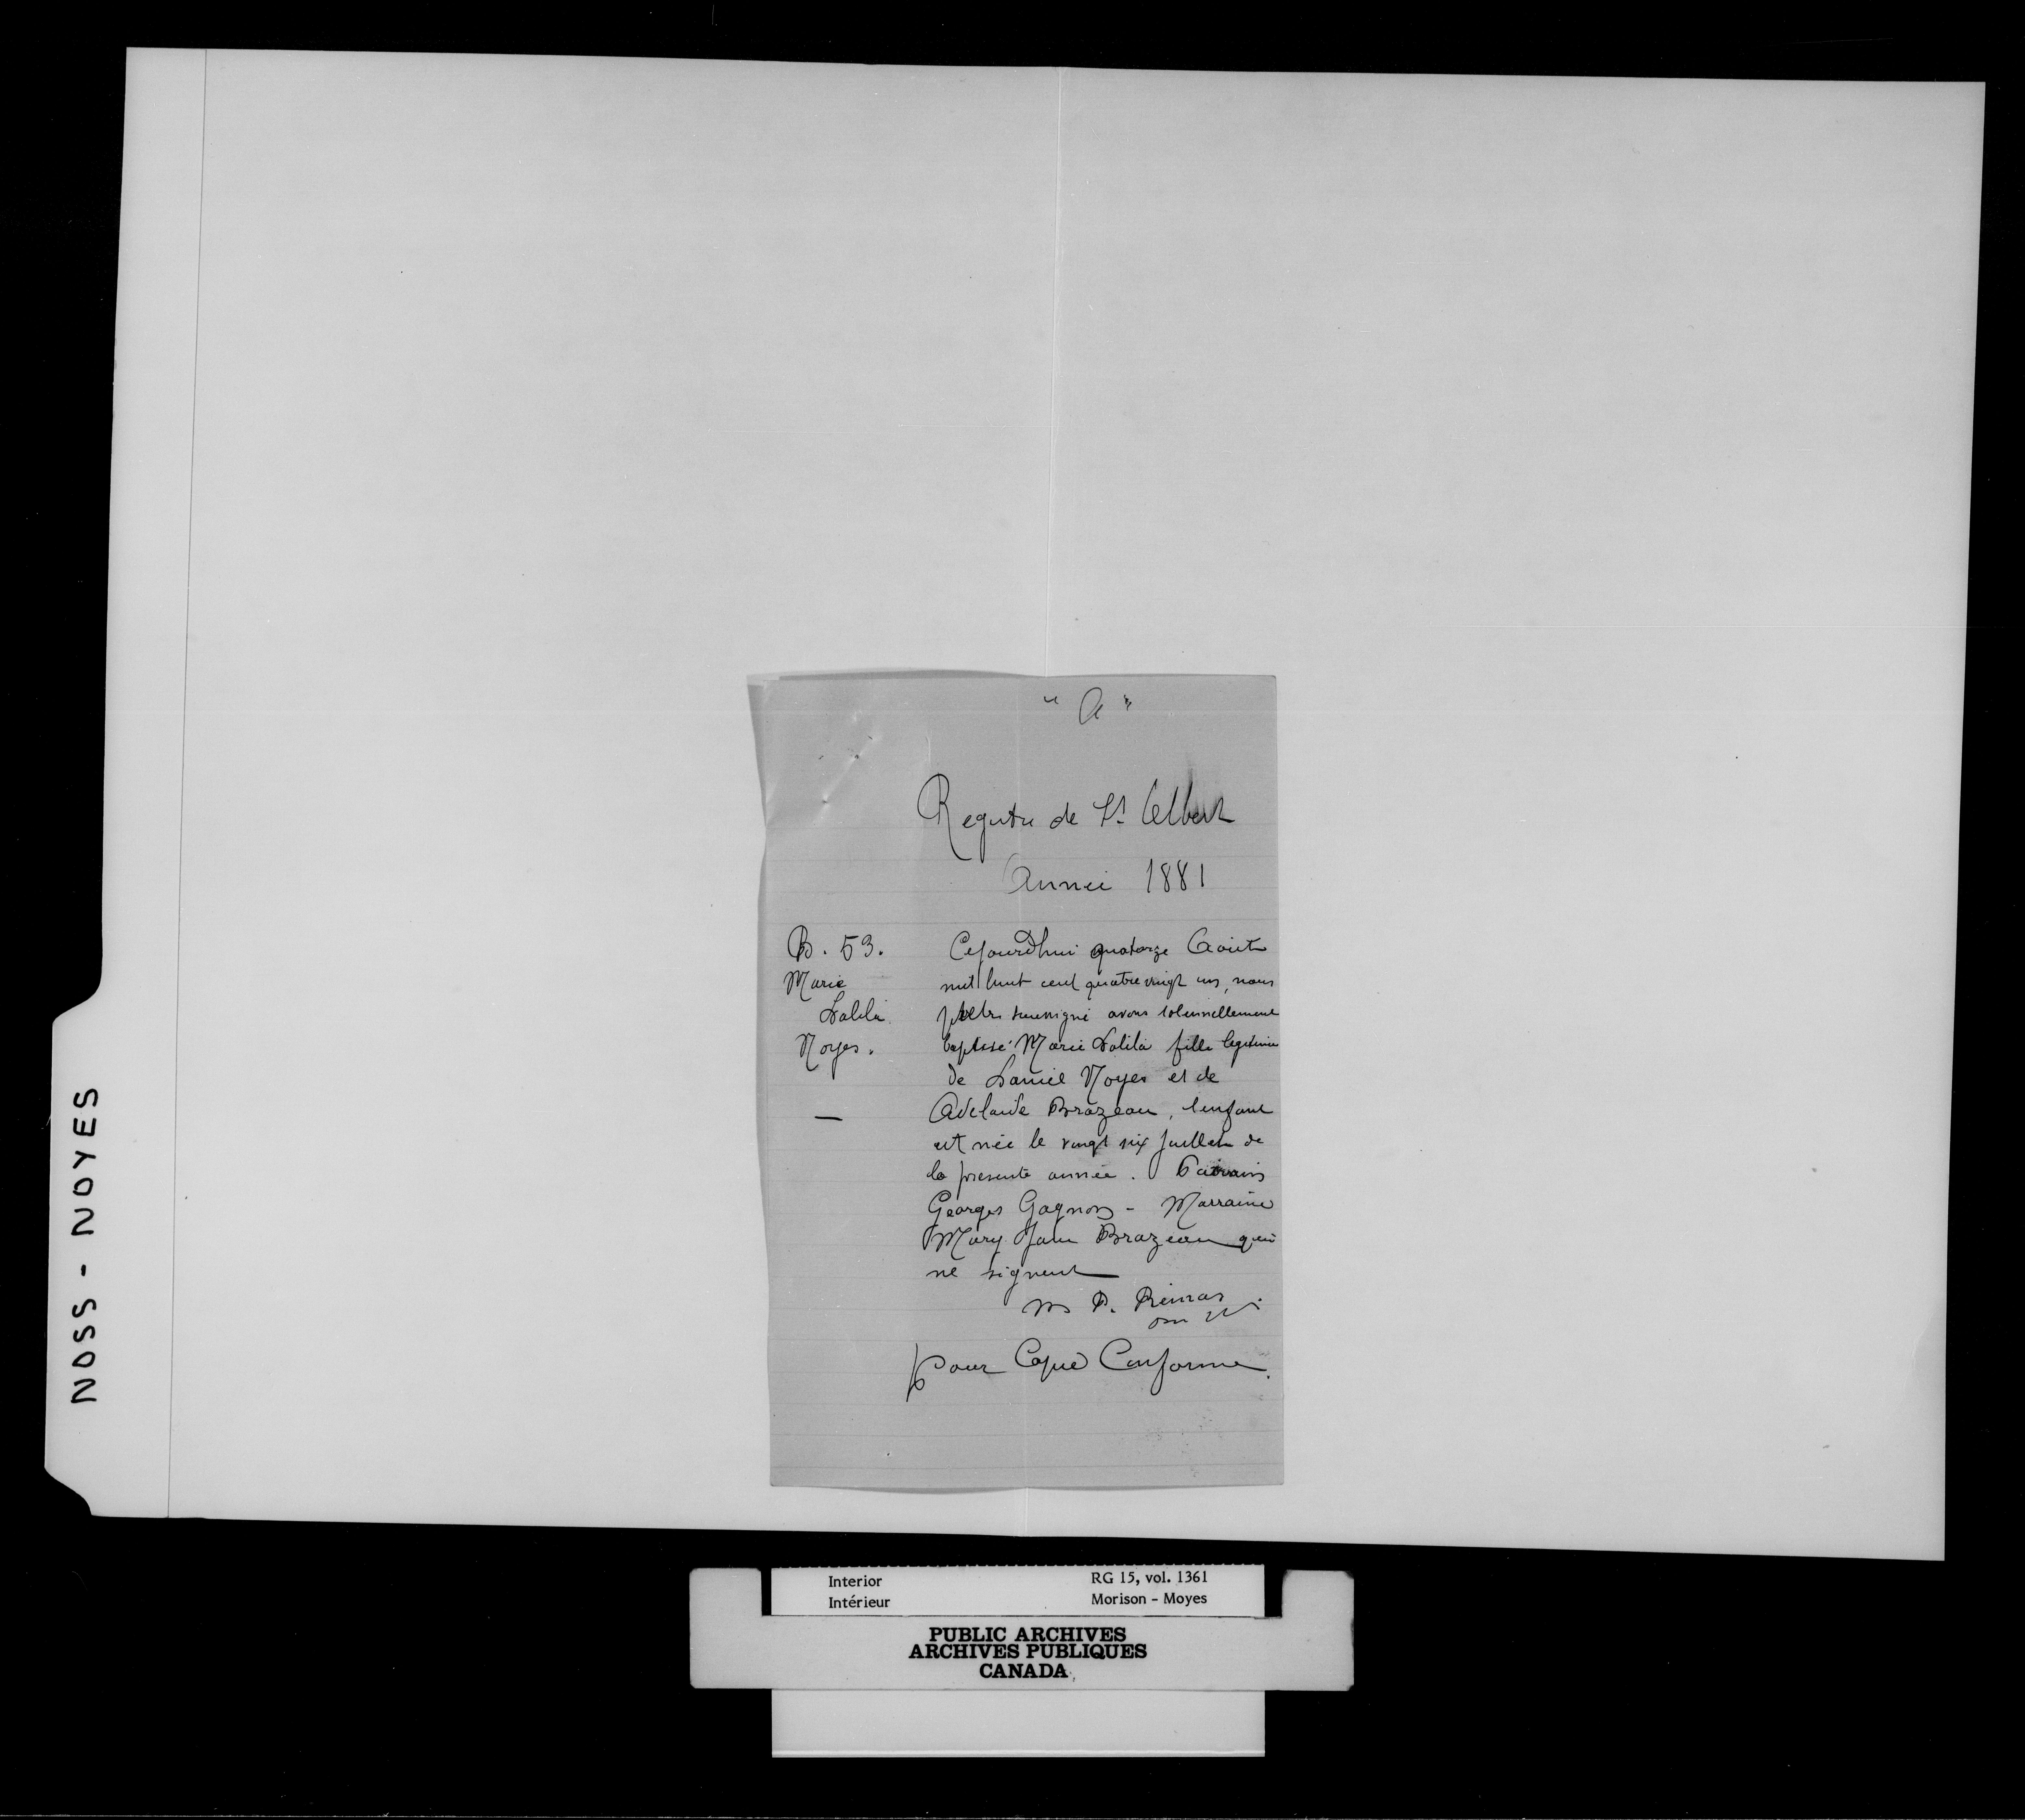 NOSS - NOYES
" A "
Registre de St Albert
Année 1881
B. 53.
Marie
Dalila
Noyes.
Cejourd'hui quatorze Aout
mil huit cent quatre vingt un, nous
prêtre soussigné avons solennellement
baptisé Marie Dalila fille legitime
de Daniel Noyes et de
Adelaide Brazeau, l'enfant
est née le vingt six Juillet de
la presente année. Parrain
Georges Gagnon - Marraine
Mary Jane Brazeau qui
ne signent
Remas
omi
Pour Copie Conforme.
Interior
Intérieur
RG 15, vol. 1361
Morison - Moyes
PUBLIC ARCHIVES
ARCHIVES PUBLIQUES
CANADA